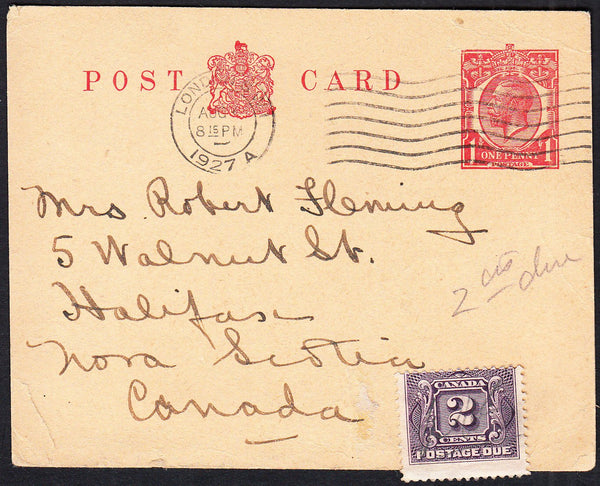 POST CARD
LONDON
AUG
8 15 PM
1927 A
ONE PENNY
1
POSTAGE
Mrs Robert Fleming
5 Walnut St.
Halifax
Nova Scotia
Canada
2 cts due
CANADA
2
CENTS
POSTAGE DUE